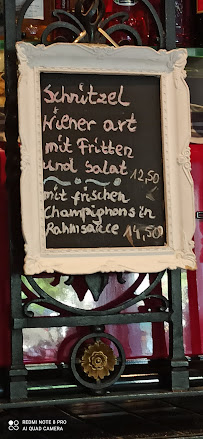 Schnitzel
Wiener art
mit Fritten
und Salat 12,50
mit frischen
Champignons in
Rahmsauce 14,50
REDMI NOTE 8 PRO
AI QUAD CAMERA